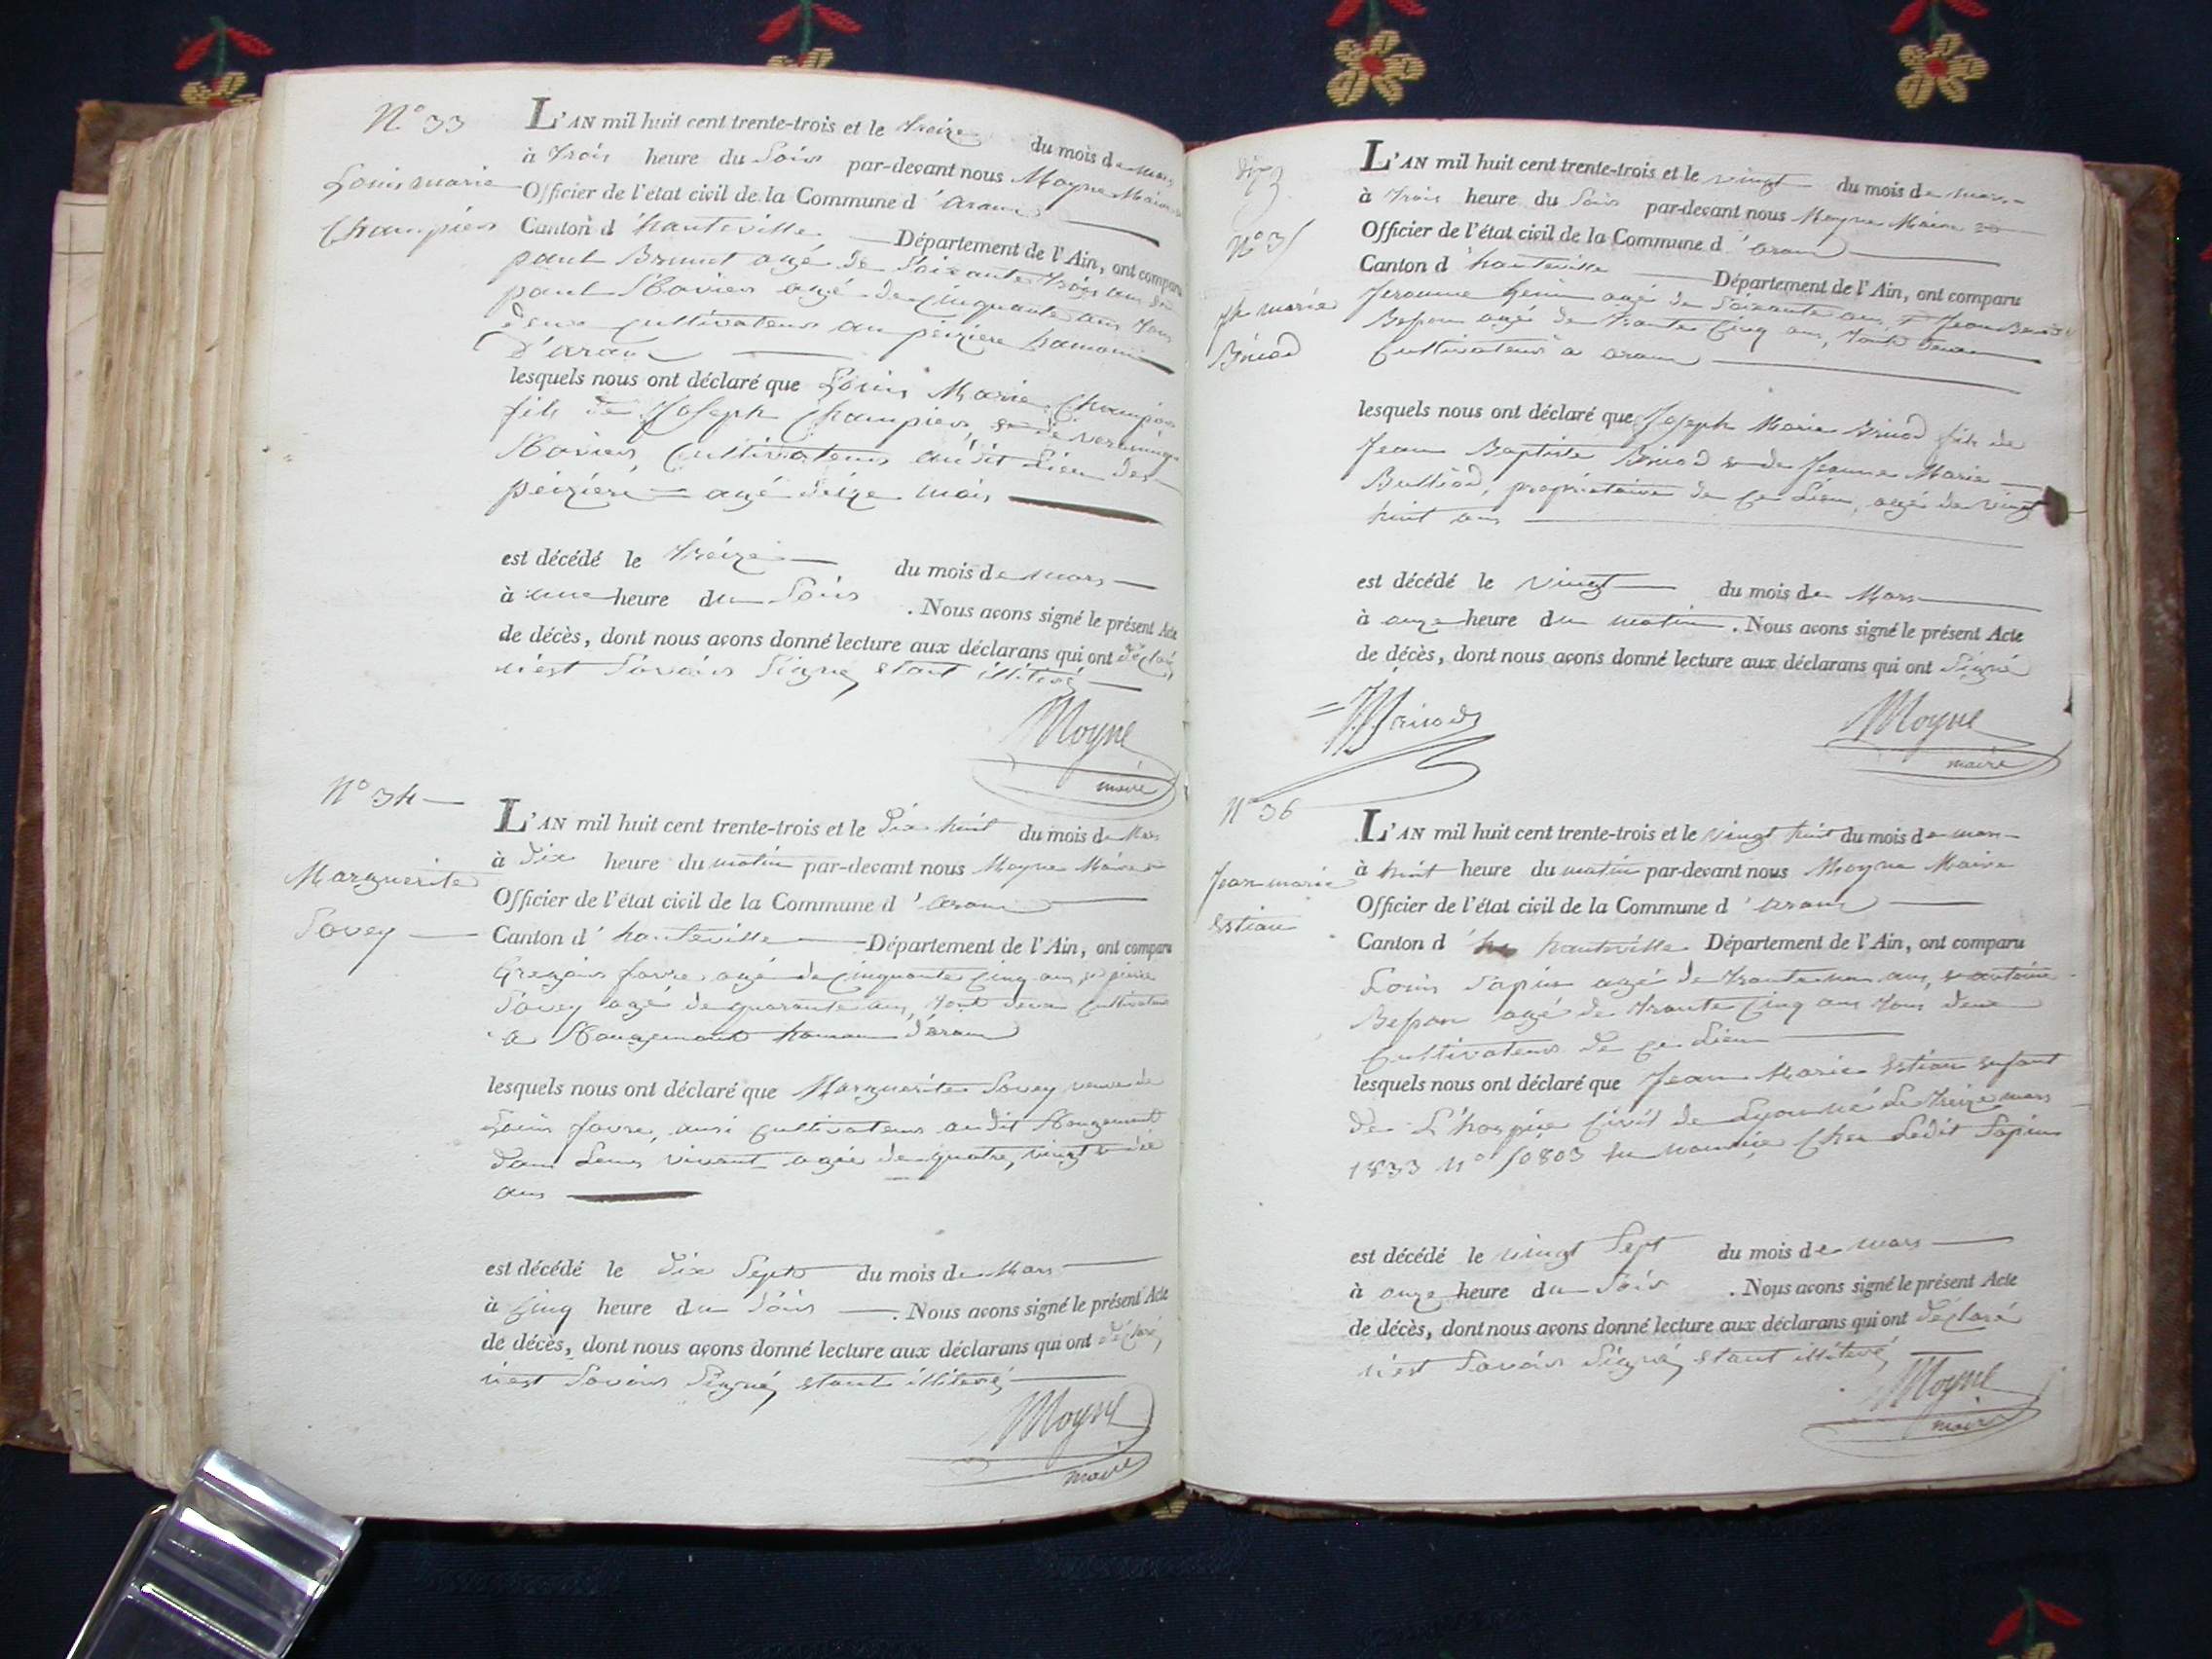 N° 33
Louis marie
Champion
L'AN mil huit cent trente-trois et le treize du mois de mars
à trois heure du Soir par-devant nous Moyne Maire
Officier de l'état civil de la Commune d'aranc
Canton d'hauteville Département de l'Ain, ont comparu
paul Brunet agé de Soixante trois ans et
paul Savier agé de Cinquante ans tous
deux Cultivateurs au peizière hamau
D'aranc
lesquels nous ont déclaré que Louis Marie Champion
fils de Joseph Champion, et de
Savier, Cultivateurs audit Lieu des
peiziere = agé deize mois
est décédé le treize du mois de mars
à une heure du Soir . Nous avons signé le présent Acte
de décès, dont nous avons donné lecture aux déclarans qui ont déclaré
n'est Savoir Signé, etant illiteré
Moyne
maire
N° 34
Marguerite
Sovey
L'AN mil huit cent trente-trois et le dix huit du mois de Mars
à dix heure du matin par-devant nous Moyne Maire
Officier de l'état civil de la Commune d'aranc
Canton d'hauteville Département de l'Ain, ont comparu
Gregoire favre agé de Cinquante Cinq ans, et pierre
Sovey agé de quarante ans, tout deux Cultivateur
a Rougemont hamau d'aranc
lesquels nous ont déclaré que Marguerite Sovey veuve de
Louis favre, ausi Cultivateurs audit Rougemont
dans Leur vivant agée de quatre, vingt
ans
est décédé le dix Sept du mois de Mars
à Cinq heure du Soir . Nous avons signé le présent Acte
de décès, dont nous avons donné lecture aux déclarans qui ont déclaré,
n'est Savoir Signé, etant illiteré
Moyne
maire
N° 35
Jh marie
Bricod
L'AN mil huit cent trente-trois et le vingt du mois de mars
à trois heure du Soir par-devant nous Moyne Maire
Officier de l'état civil de la Commune d'aranc
Canton d'hauteville Département de l'Ain, ont comparu
agé de Soixante ans, et Jean
Besson agé de trante Cinq ans, tout deux
Cultivateurs a aranc
lesquels nous ont déclaré que Joseph Marie Bricod fils de
Jean Baptiste Bricod et de Jeanne Marie
Bulliod, propriétaire de ce Lieu, agé de vingt
huit ans
est décédé le vingt du mois de Mars
à onze heure du matin . Nous avons signé le présent Acte
de décès, dont nous avons donné lecture aux déclarans qui ont Signé
Moyne
maire
N° 36
Jean marie
Estian
L'AN mil huit cent trente-trois et le vingt huit du mois de mars
à huit heure du matin par-devant nous Moyne Maire
Officier de l'état civil de la Commune d'aranc
Canton d' hauteville Département de l'Ain, ont comparu
Louis Sapin agé de trante ans, et antoine
Besson agé de trante Cinq ans tous deux
Cultivateurs de ce Lieu
lesquels nous ont déclaré que Jean Marie Estian enfant
de L'hospice Civil de Lyon né Le treize mars
1833 N° 50803 en nourrice Chez Ledit Sapin
est décédé le vingt Sept du mois de mars
à onze heure du Soir . Nous avons signé le présent Acte
de décès, dont nous avons donné lecture aux déclarans qui ont déclaré
n'est Savoir Signé, etant illiteré
Moyne
maire